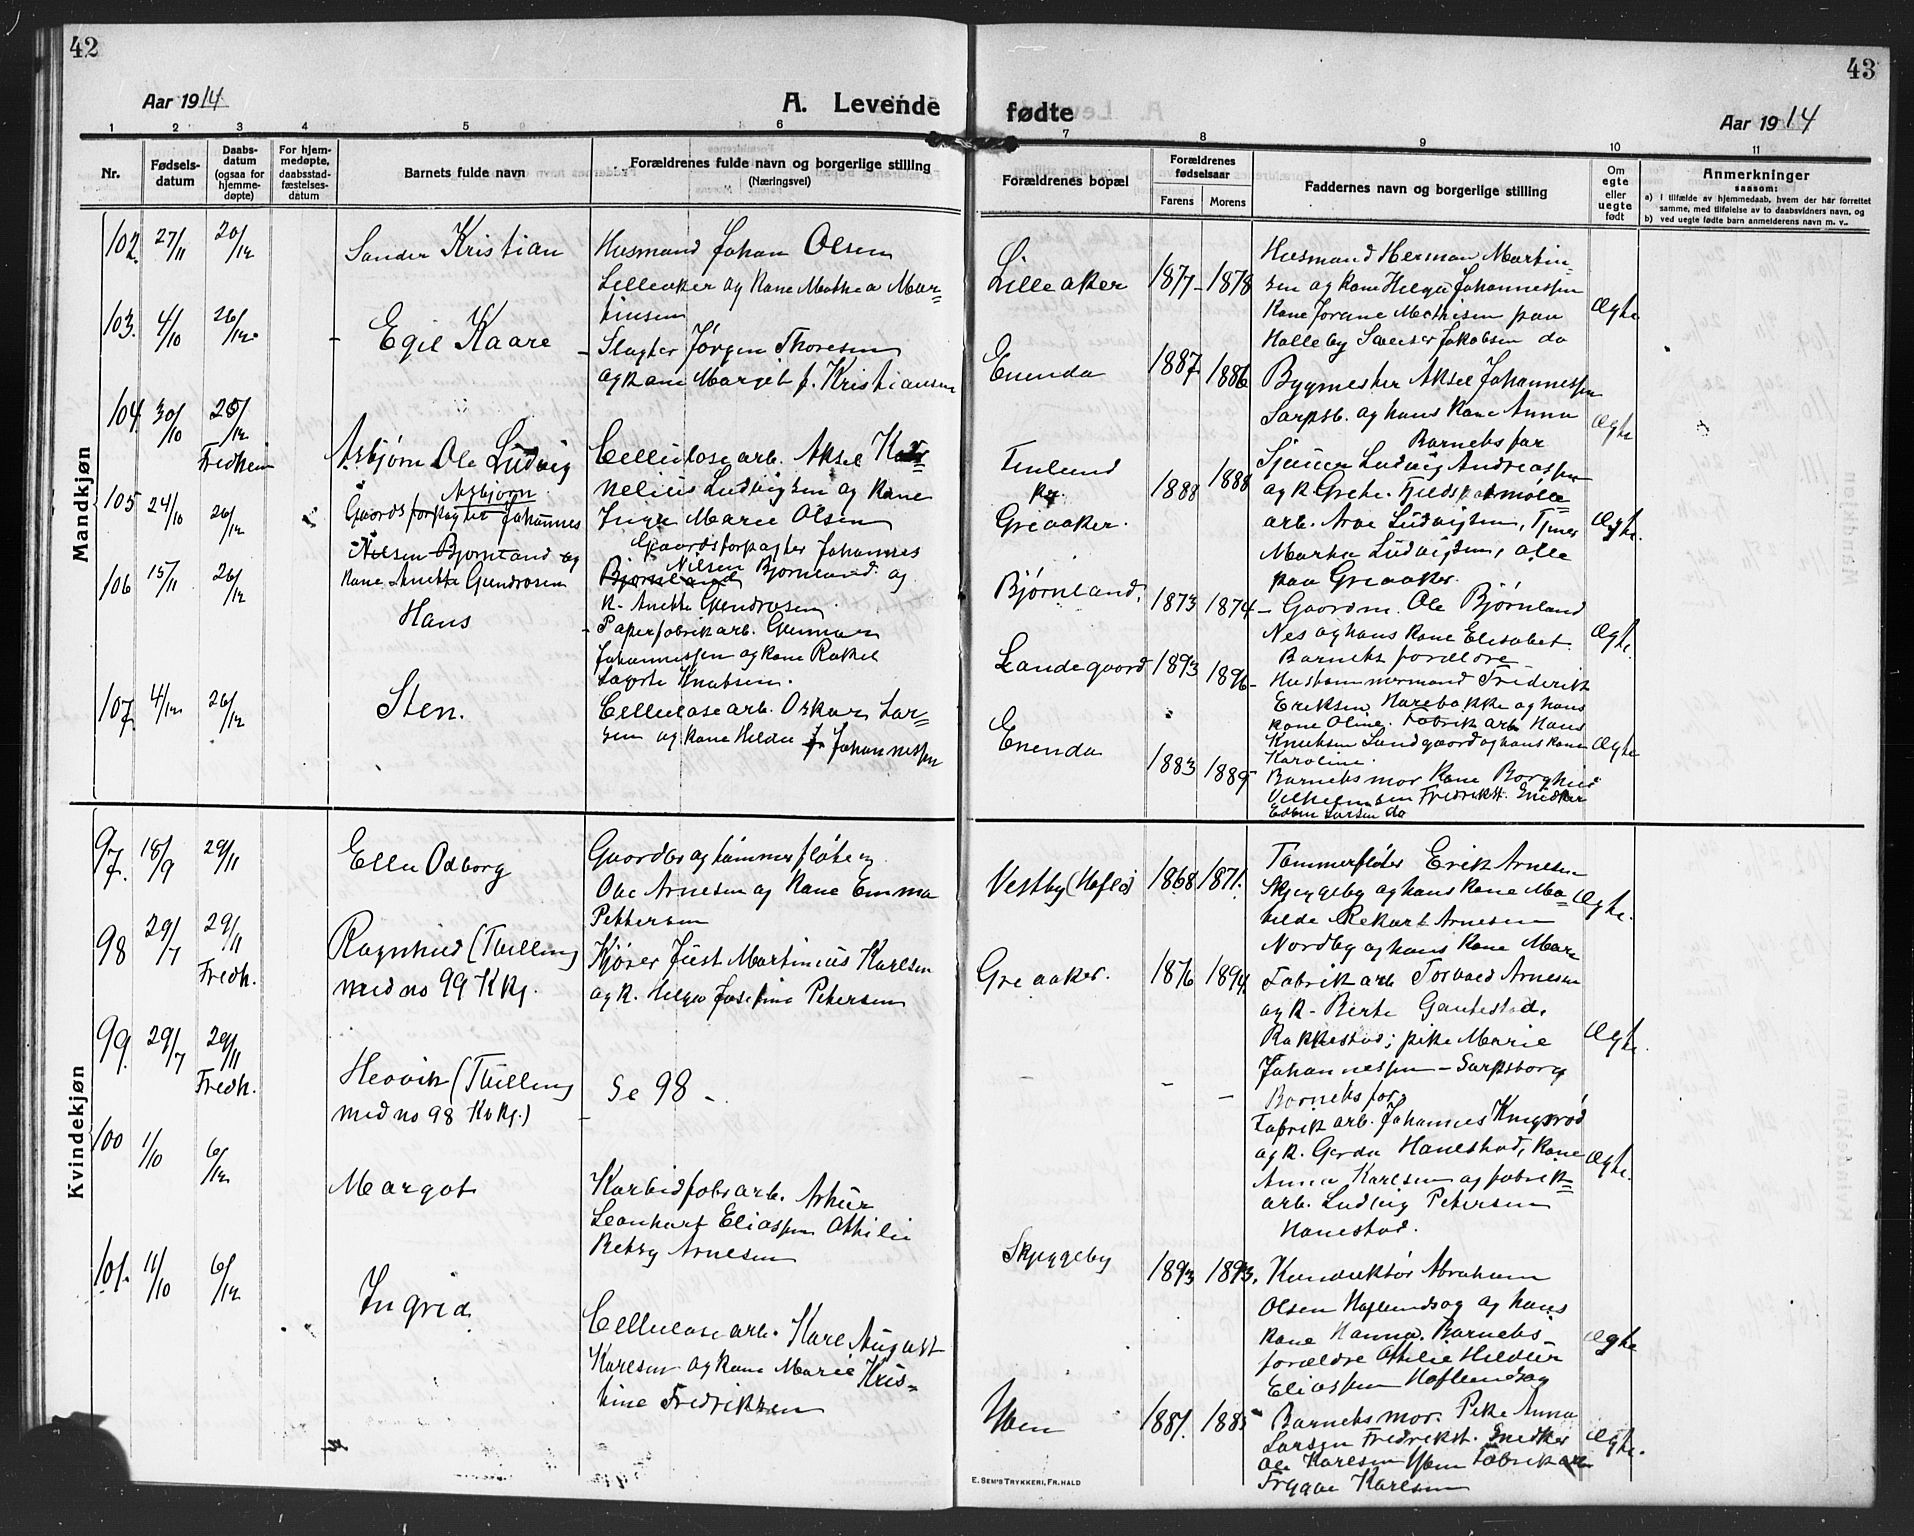 42
Aar 1914
A. Levende
1 2 3 4 5 6
Nr. Fødselsdatum Daabsdatum (ogsaa for hjemmedøpte) For hjemmedøpte, daabsstadfæstelsesdatum Barnets fulde navn Forældrenes fulde navn og borgerlige stilling (Næringsvei)
Mandkjøn
102. 27/11 20/12 Sander Kristian
Husmand Johan Olsen
Lilleaker og kone Mathea Mar-
tinsen
103. 4/10 26/12 Egil Kaare
Slagter Jørgen Thoresen
og kone Margit f. Kristiansen
104. 30/10 25/12 Fredheim Asbjørn Ole Ludvig
Cellulosearb. Aksel Kor-
nelius Ludvigsen og kone
Inga Marie Olsen
105 24/10 26/12 Asbjørn
Gaardsforpagter Johannes
Nilsen Bjørnland og
kone Anette Gundrosen
Gaardsforpagter Johannes
Nilsen Bjørnland og
k. Anette Gundrosen.
106 15/11 26/12 Hans
Papirfabrikarb. Gunnar
Johannessen og kone Rakel
Knutsen.
107. 4/12 26/12 Sten.
Cellulosearb. Oskar Lar-
sen og kone Hilda f. Johannessen
Kvindekjøn
97. 18/9 29/11 Ella Odborg
Gaardbr og tømmerfløter
Ole Arnesen og kone Emma
Pettersen
98 29/7 29/11 Fredh. Ragnhild (Tvilling
med no 99 Kkj.
Kjører Just Martinius Karlsen
og k. Helga Josefine Petersen
99. 29/7 29/11 Fredh. Hedvik (Tvilling
med no 98 Kvkj.)
Se 98 -
100 1/10 6/12 Margot
Karbidfabr arb. Arthur
Leonhart Eliassen Othilie
Betsy Arnesen
101. 11/10 6/12 Ingrid
Cellulosearb. Karl August
Karlsen og kone Marie Kris-
tine Fredriksen
43
fødte
Aar 1914
7 8 9 10 11
Forældrenes bopæl Forældrenes fødselsaar Farens Morens Faddernes navn og borgerlige stilling Om egte eller uegte født
Anmerkninger
saasom:
a) i tilfælde av hjemmedaab, hvem der har forrettet
samme, med tilføielse av to daabsvidners navn, og
b) ved uegte fødte barn anmelderens navn m. v..
Lilleaker 1877 - 1878 Ægte
Husmand Herman Martin-
sen og kone Helga Johannessen
Kone Jorane Mathisen paa
Halleby Jakobsen do
Enenda 1887 1886 Ægte
Bygmester Aksel Johannessen
Sarpsb. og hans kone Anna
Finland
pr.
Greaaker. 1888 1888 Ægte.
Barnets far
Ludvig Andreassen
og k Grethe. Feldspatmølle
arb. Arve Ludvigsen, Tjener
Marta Ludvigsen, alle
paa Greaaker.
Bjørnland. 1873 1874 Ægte.
- Gaardm. Ole Bjørnland
Nes og hans kone Elisabet.
Barnets forældre
Landegaard 1893 1896 Ægte
Hustømmermand Frederik
Eriksen Harebakke og hans
kone Oline. Fabrikarb Hans
Knutsen Landgaard og hans kone
Karoline.
Enenda 1883 1889
Barnets mor kone Borghild
Vilhelmsen Fredrikst. Snedker
Edvin Larsen do
Vestby (Hafle) 1868 1871. Ægte.
Tømmerfløter Erik Arnesen
Skjeggeby og hans kone Ma-
tilde Rekart Arnesen
Nordby og hans kone Mar
Greaaker. 1876 1894. Ægte.
Fabrikarb Torvald Arnesen
og k - Berte Gautestad.
Rakkestad; pike Marie
Johannessen - Sarpsborg
Barnets far
- - Ægte.
Fabrikarb. Johannes
og k. Gerda Hanestad, kone
Anna Karlsen og fabrik-
arb. Ludvig Petersen
Hanestad.
Skjeggeby 1893 1893. Ægte
Konduktør Abraham
Olsen Haflundsøg og hans
kone Hanna. Barnets
forældre Othilie Hildur
Eliassen Haflundsøg
Ysen 1887. 1885 Ægte.
Barnets mor. Pike Anna
Larsen Fredrikst. Snedker
Ole Karlsen Ysen Fabrikarb
Trygve Karlsen
E. SEM'S TRYKKERI, FR.HALD